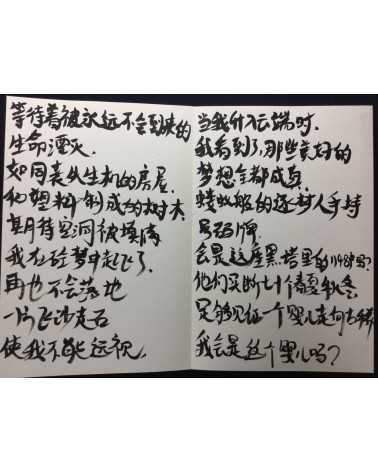 等待着被永远不会到来的
生命湮灭.
如同丧失生机的房屋.
和塑料制成的树木.
莫期待空洞被填满
我在轻梦中起飞了.
再也不会落地
一片飞沙走石
使我不能远视.
当我升入云端时.
我看到了.那些美好的
梦想全都成真.
蜂蚁般的逐梦人手持
号码牌.
会是这座黑塔里的1984吗?
他们买断七十个春夏秋冬
足够见证一个婴儿走向
我会是这个婴儿吗?